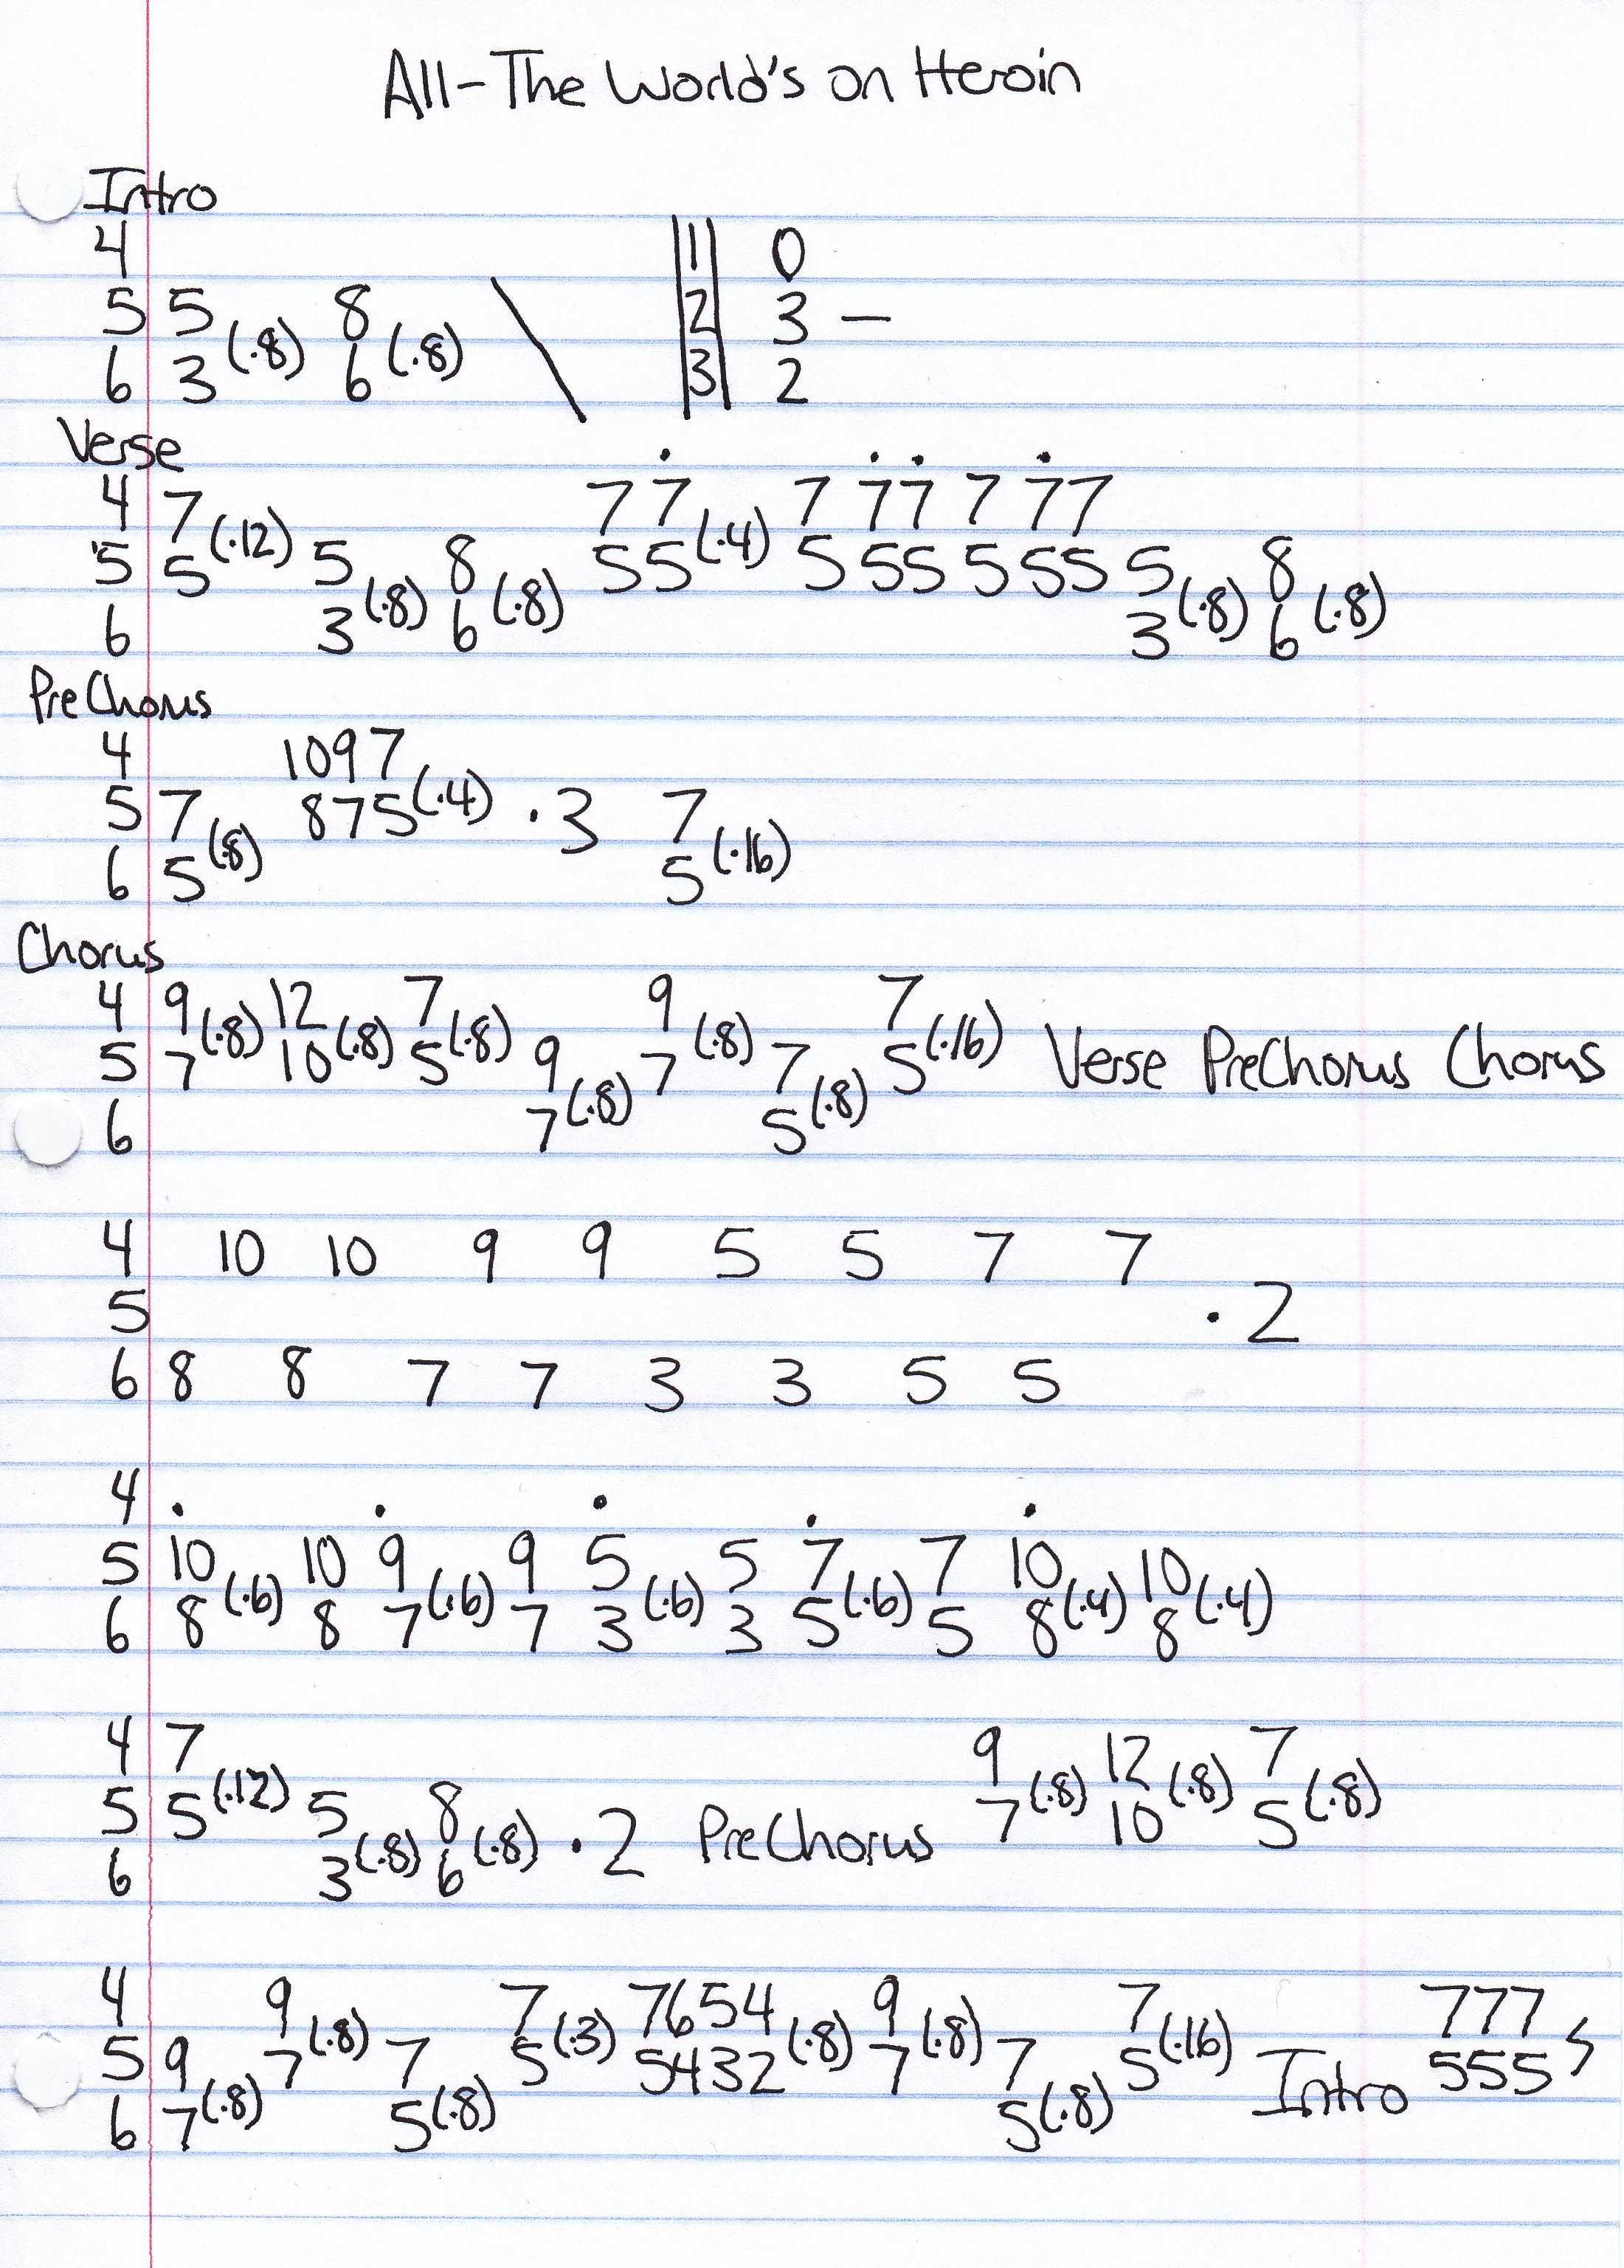 All-The World's on Heroin
Intro
4 1 0
5 5 8 2 3 —
6 3 (·8) 6 (·8) \ 3 2
Verse
4 7 7 7 7 7 7 7 7 7
5 5 (·12) 5 8 5 5 (·4) 5 5 5 5 5 5 5 8
6 3 (·8) 6 (·8) 3 (·8) 6 (·8)
PreChorus
4 10 9 7
5 7 8 7 5 (·4) ·3 7
6 5 (·8) 5 (·16)
Chorus
4 9 12 7 9 7
5 7 (·8) 10 (·8) 5 (·8) 9 7 (·8) 7 5 (·16) Verse PreChorus Chorus
6 7 (·8) 5 (·8)
4 10 10 9 9 5 5 7 7
5 ·2
6 8 8 7 7 3 3 5 5
4
5 10 10 9 9 5 5 7 7 10 10
6 8 (·6) 8 7 (·6) 7 3 (·6) 3 5 (·6) 5 8 (·4) 8 (·4)
4 7 9 12 7
5 5 (·12) 5 8 7 (·8) 10 (·8) 5 (·8)
6 3 (·8) 6 (·8) ·2 PreChorus
4 9 7 7654 9 7 777
5 9 7 (·8) 7 5 (·3) 5432 (·8) 7 (·8) 7 5 (·16) Intro 555
6 7 (·8) 5 (·8) 5 (·8)